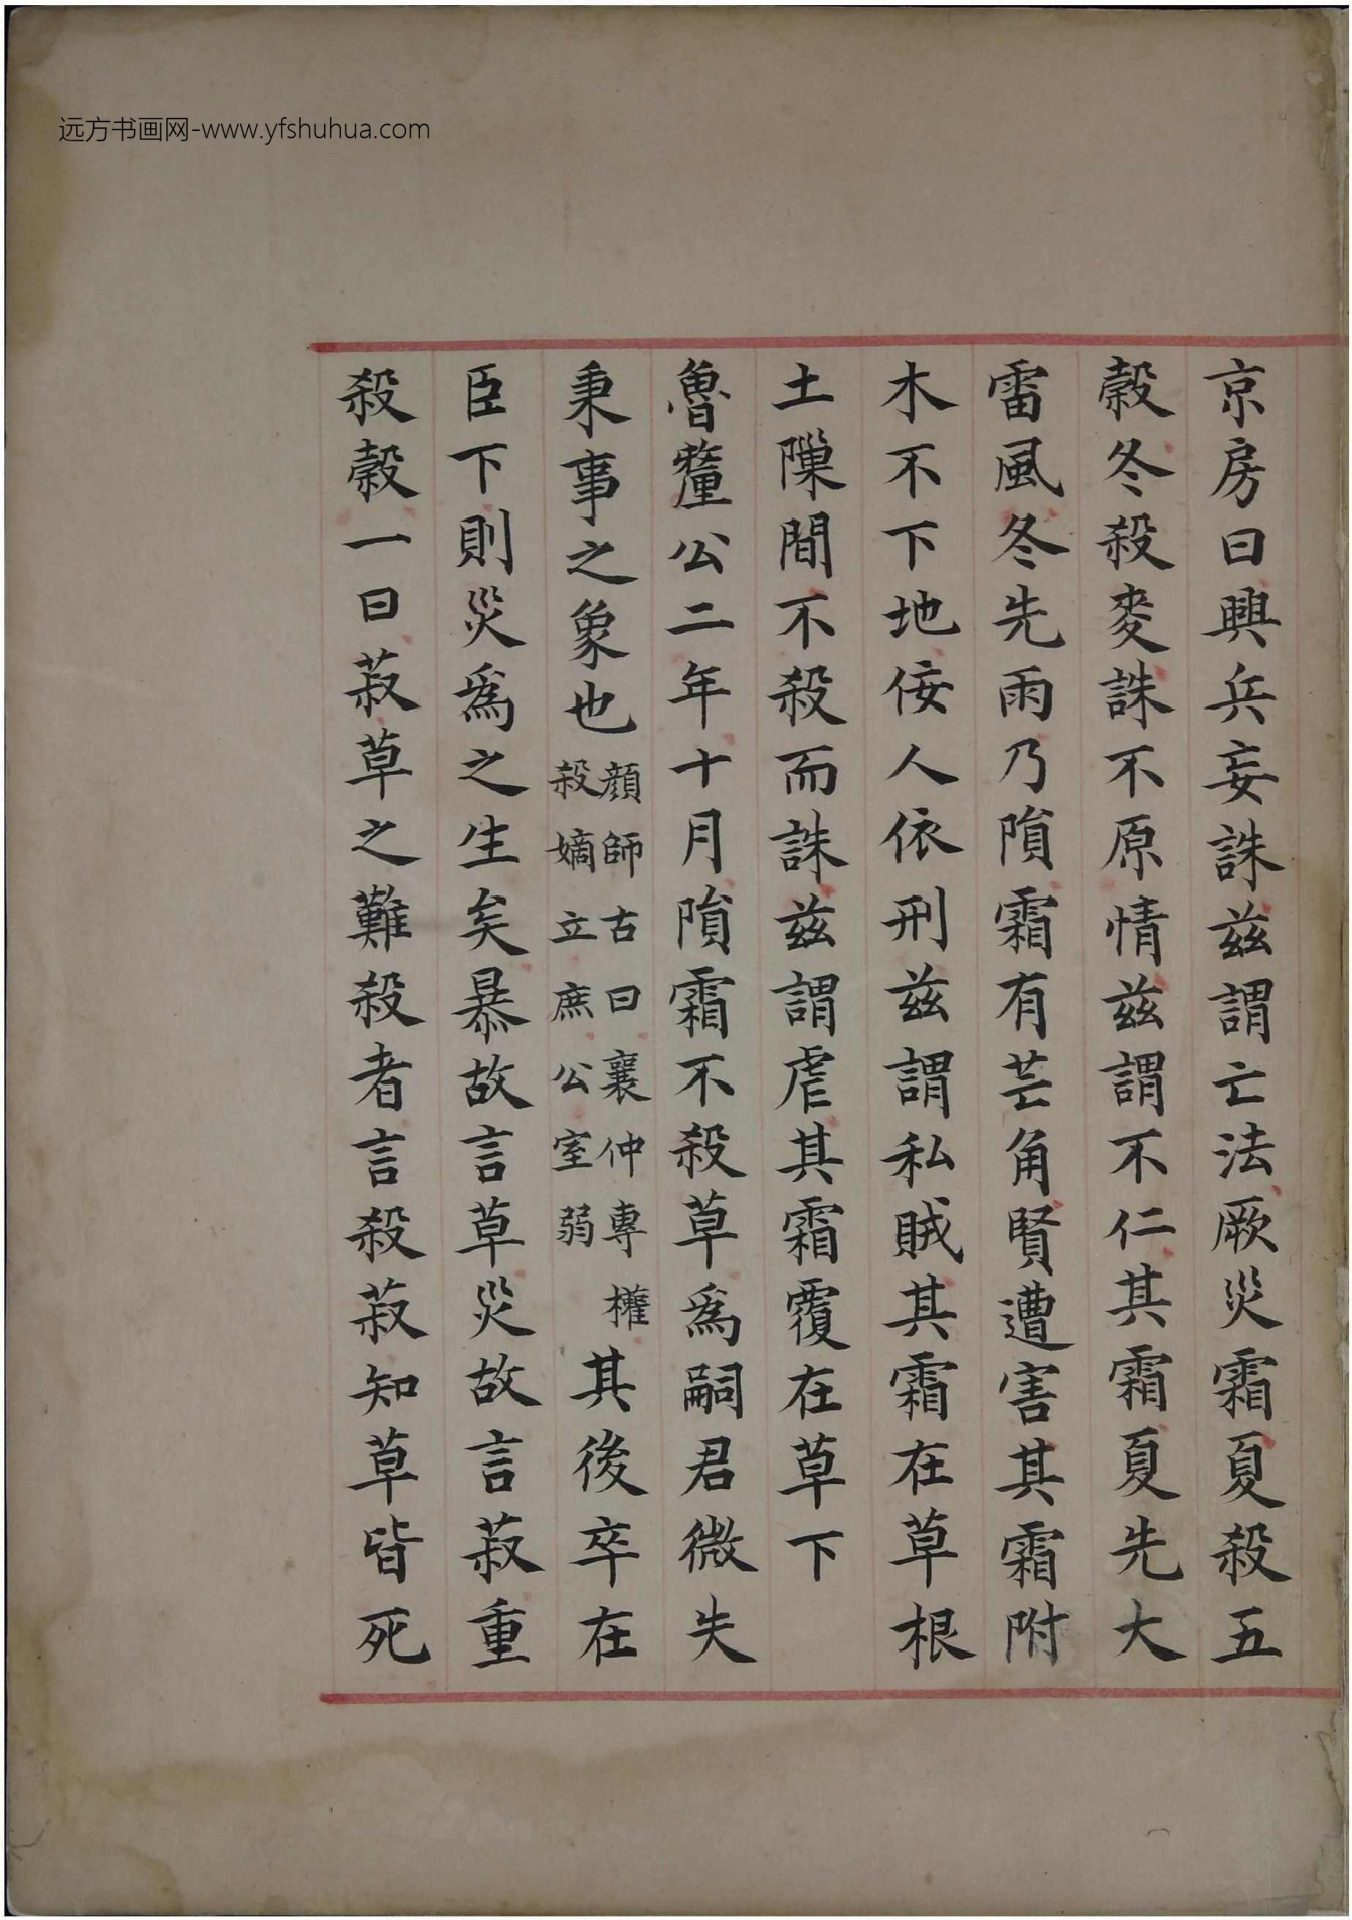 远方书画网-www.yfshuhua.com
京房曰興兵妄誅茲謂亡法厥災霜夏殺五
穀冬殺麥誅不原情茲謂不仁其霜夏先大
雷風冬先雨乃隕霜有芒角賢遭害其霜附
木不下地佞人依刑茲謂私賊其霜在草根
土隟間不殺而誅茲謂虐其霜覆在草下
魯釐公二年十月隕霜不殺草為嗣君微失
秉事之象也顏師古曰襄仲專權殺嫡立庶公室弱其後卒在
臣下則災為之生矣暴故言草災故言菽重
殺穀一曰菽草之難殺者言殺菽知草皆死